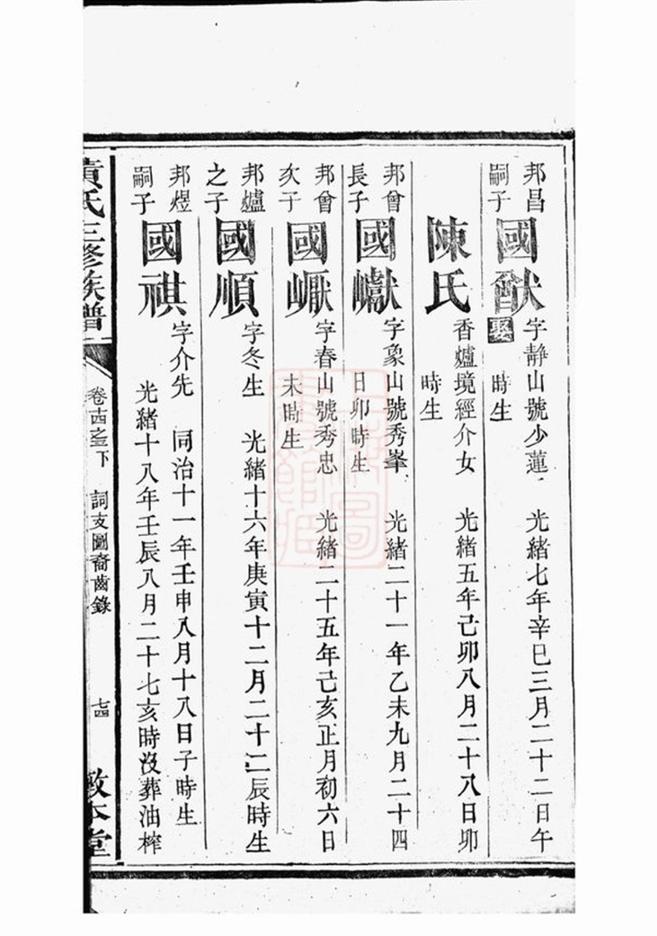 邦昌
嗣子
國猷
字靜山號少蓮 光緒七年辛巳三月二十二日午
娶 時生
陳氏
香爐境經介女 光緒五年己卯八月二十八日卯
時生
邦曾
長子
國巘
字象山號秀峯 光緒二十一年乙未九月二十四
日卯時生
邦曾
次子
字春山號秀忠 光緒二十五年己亥正月初六日
未時生
邦爐
之子
國順
字冬生 光緒十六年庚寅十二月二十二辰時生
邦煜
嗣子
國祺
字介先 同治十一年壬申八月十八日子時生
光緒十八年壬辰八月二十七亥時沒葬油榨
黃氏三修族譜
卷十四之三下 詞支圖裔齒錄
七四
敦本堂